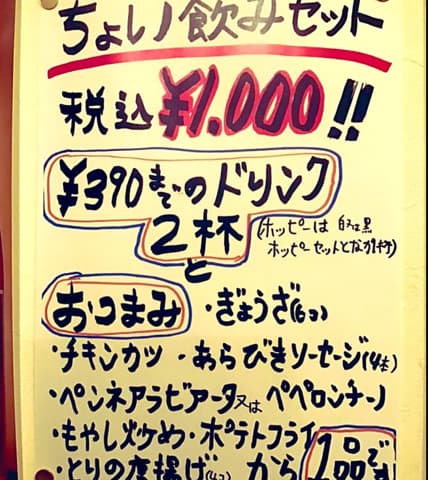 ちょい飲みセット
税込¥1,000!!
¥390までのドリンク
2杯(ホッピーは白又は黒
ホッピーセットとなか1杯)
と
おつまみ ・ぎょうざ(6コ)
・チキンカツ ・あらびきソーセージ(4本)
・ペンネアラビアータ又はペペロンチーノ
・もやし炒め・ポテトフライ
・とりの唐揚げ(4コ)から1品です